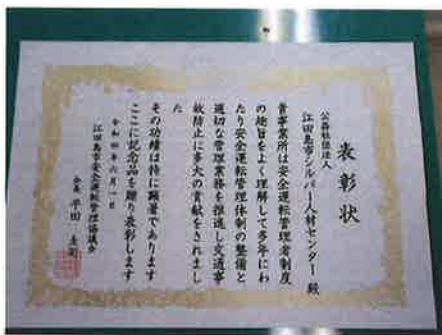 表彰状
公益社団法人
江田島市シルバー人材センター 殿
貴事業所は安全運転管理者制度
の趣旨をよく理解して多年にわ
たり安全運転管理体制の整備と
適切な管理業務を推進し交通事
故防止に多大の貢献をされまし
た
その功績は特に顕著であります
ここに記念品を贈り表彰します
令和四年六月一日
江田島市安全運転管理協議会
会長 平田